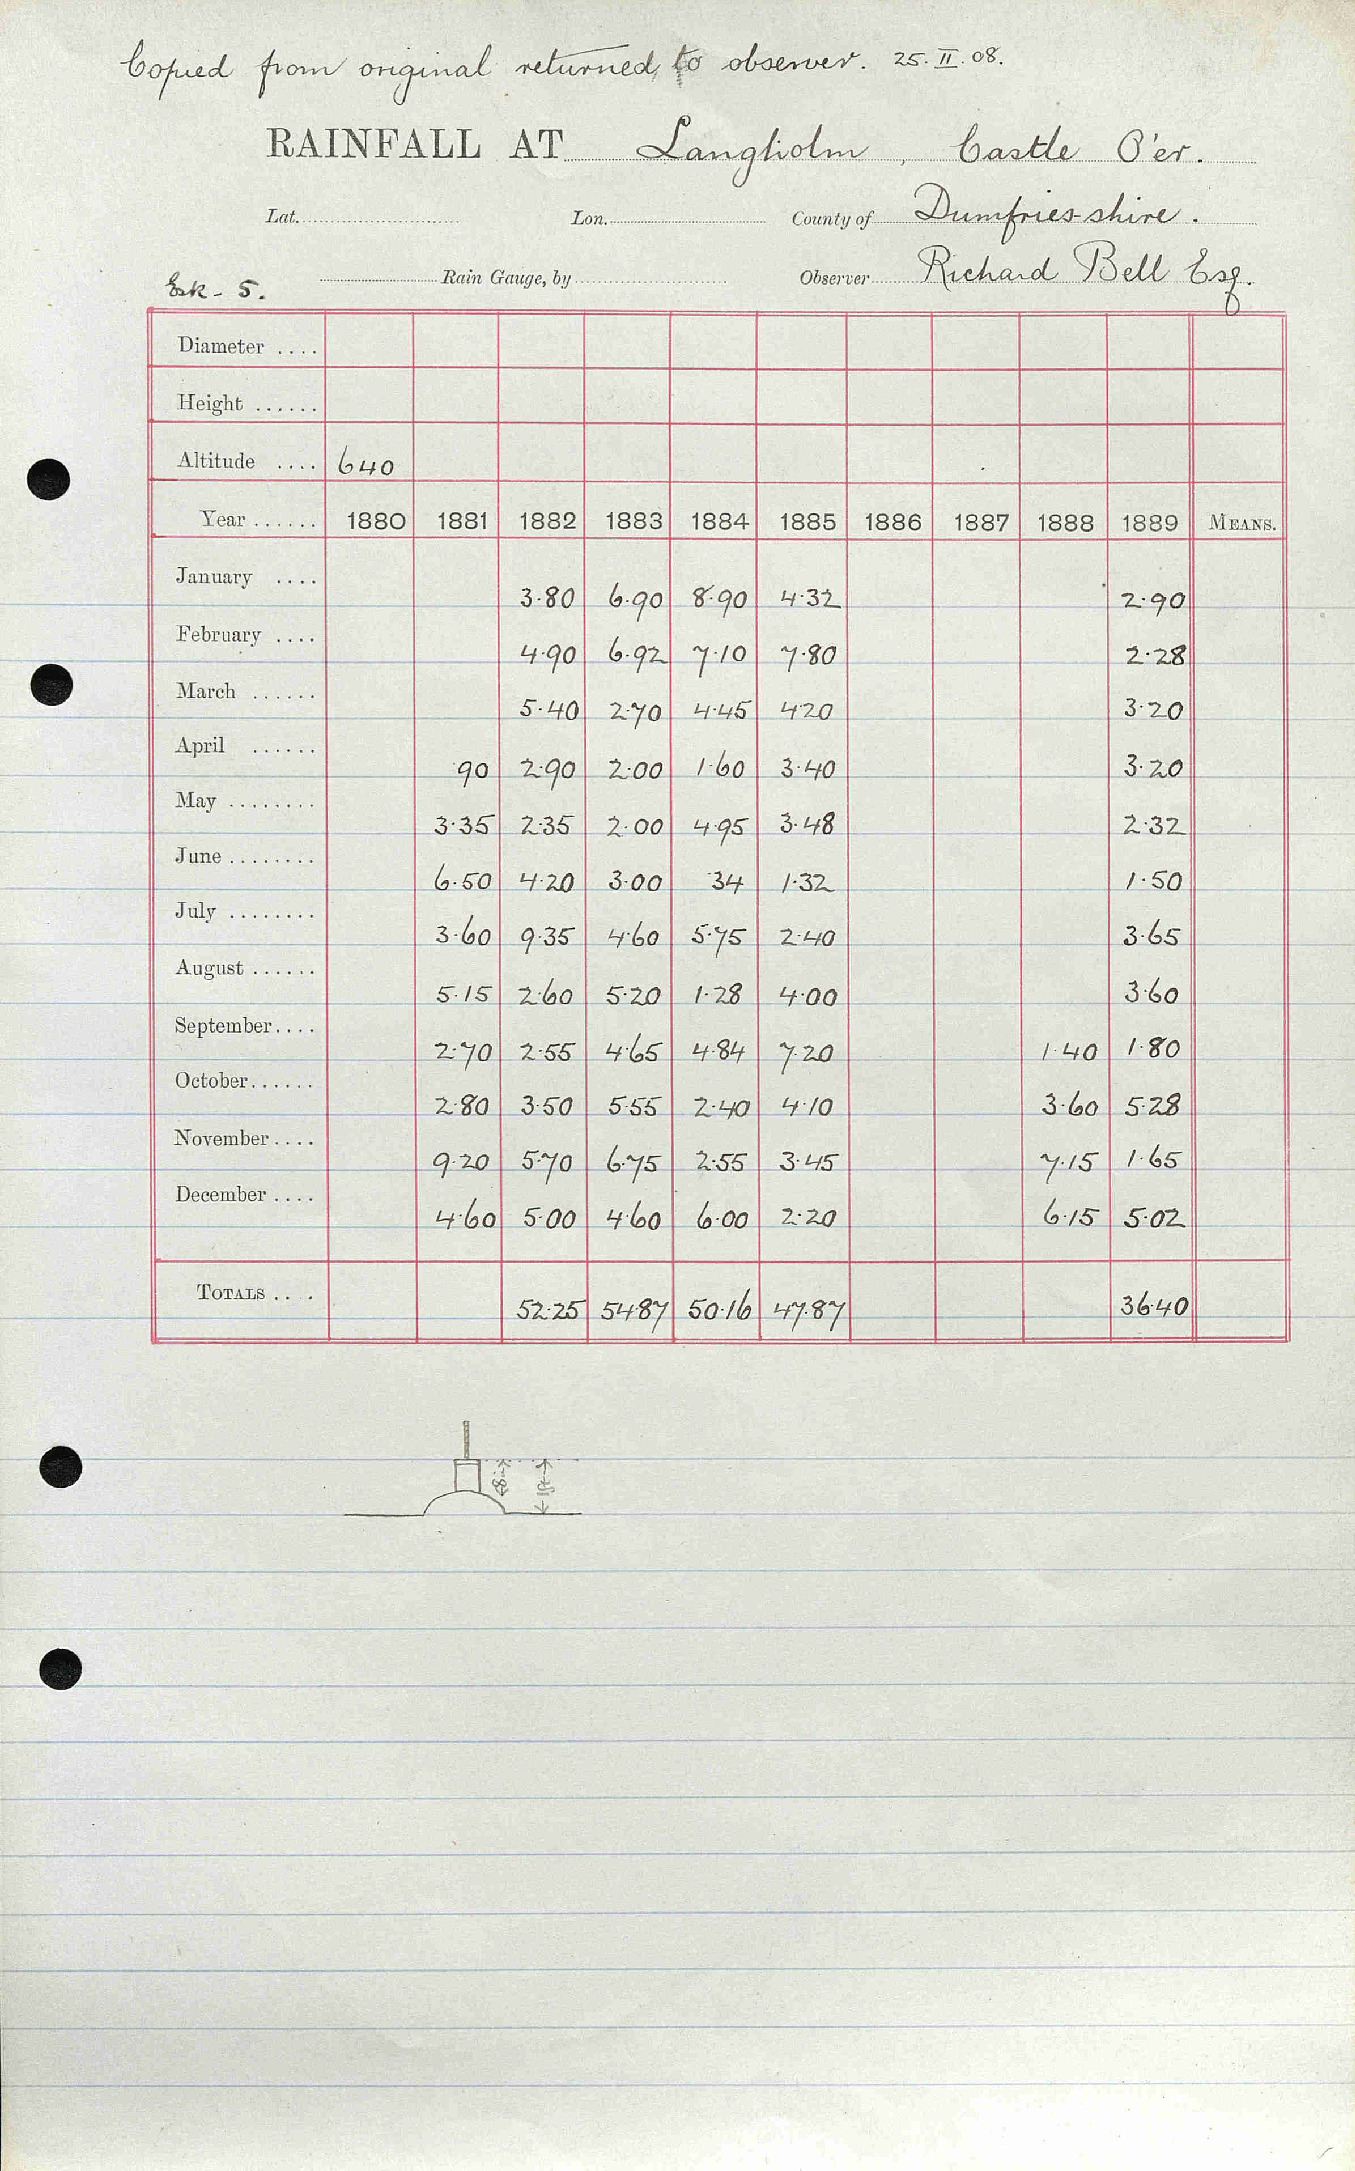 Copied from original returned, to observer. 25. II. 08.
RAINFALL AT Langholm, Castle O'er.
Lat. Lon. County of Dumfries-shire.
Esk - 5. Rain Gauge, by Observer Richard Bell Esq.
Diameter ....
Height ......
Altitude .... 640
Year ...... 1880 1881 1882 1883 1884 1885 1886 1887 1888 1889 MEANS.
January .... 3.80 6.90 8.90 4.32 2.90
February .... 4.90 6.92 7.10 7.80 2.28
March ...... 5.40 2.70 4.45 4.20 3.20
April ...... .90 2.90 2.00 1.60 3.40 3.20
May ........ 3.35 2.35 2.00 4.95 3.48 2.32
June ........ 6.50 4.20 3.00 .34 1.32 1.50
July ........ 3.60 9.35 4.60 5.75 2.40 3.65
August ...... 5.15 2.60 5.20 1.28 4.00 3.60
September.... 2.70 2.55 4.65 4.84 7.20 1.40 1.80
October...... 2.80 3.50 5.55 2.40 4.10 3.60 5.28
November.... 9.20 5.70 6.75 2.55 3.45 7.15 1.65
December .... 4.60 5.00 4.60 6.00 2.20 6.15 5.02
TOTALS .. . 52.25 54.87 50.16 47.87 36.40